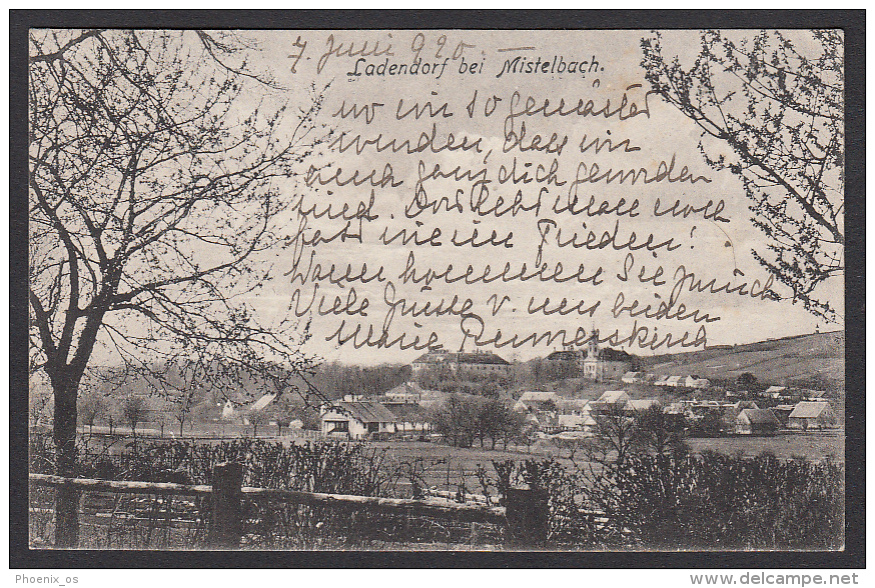 7. Juni 920. —
Ladendorf bei Mistelbach.
wo wir so gemästet
wurden, dass wir
auch ganz dich geworden
sind. Dort lebt man noch
fast wie im Frieden!
Wann kommen Sie zurück
Viele Grüsse v. uns beiden
Marie
Phoenix_os
www.delcampe.net